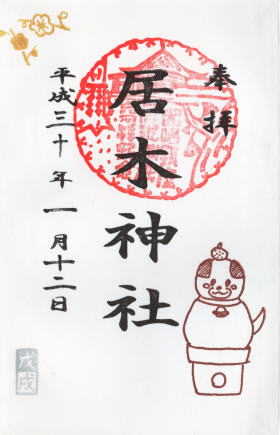 奉拝
居木神社
平成三十年一月十二日
戊戌